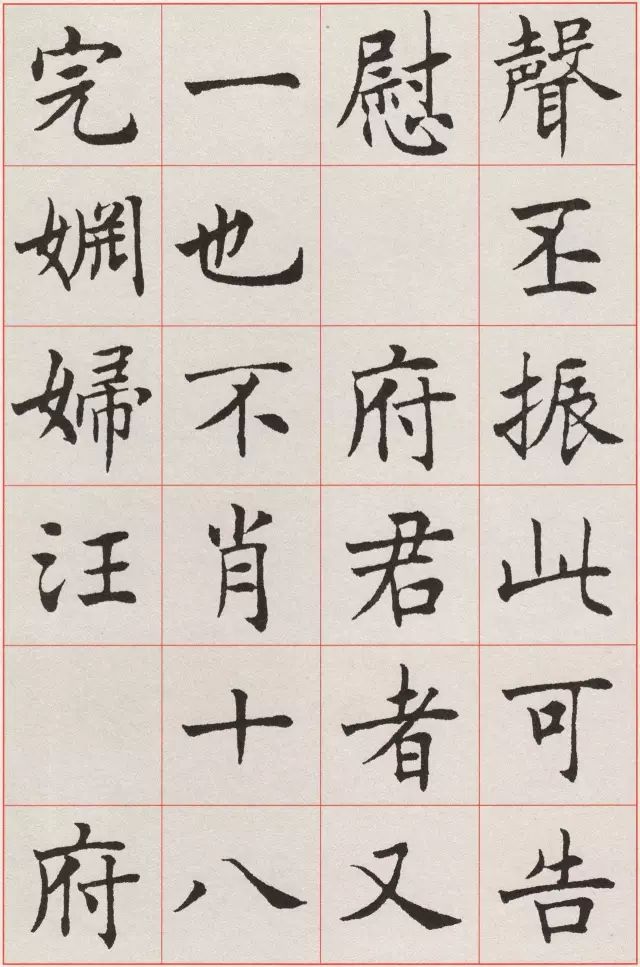 聲丕振此可告
慰 府君者又
一也不肖十八
完婣婦汪 府